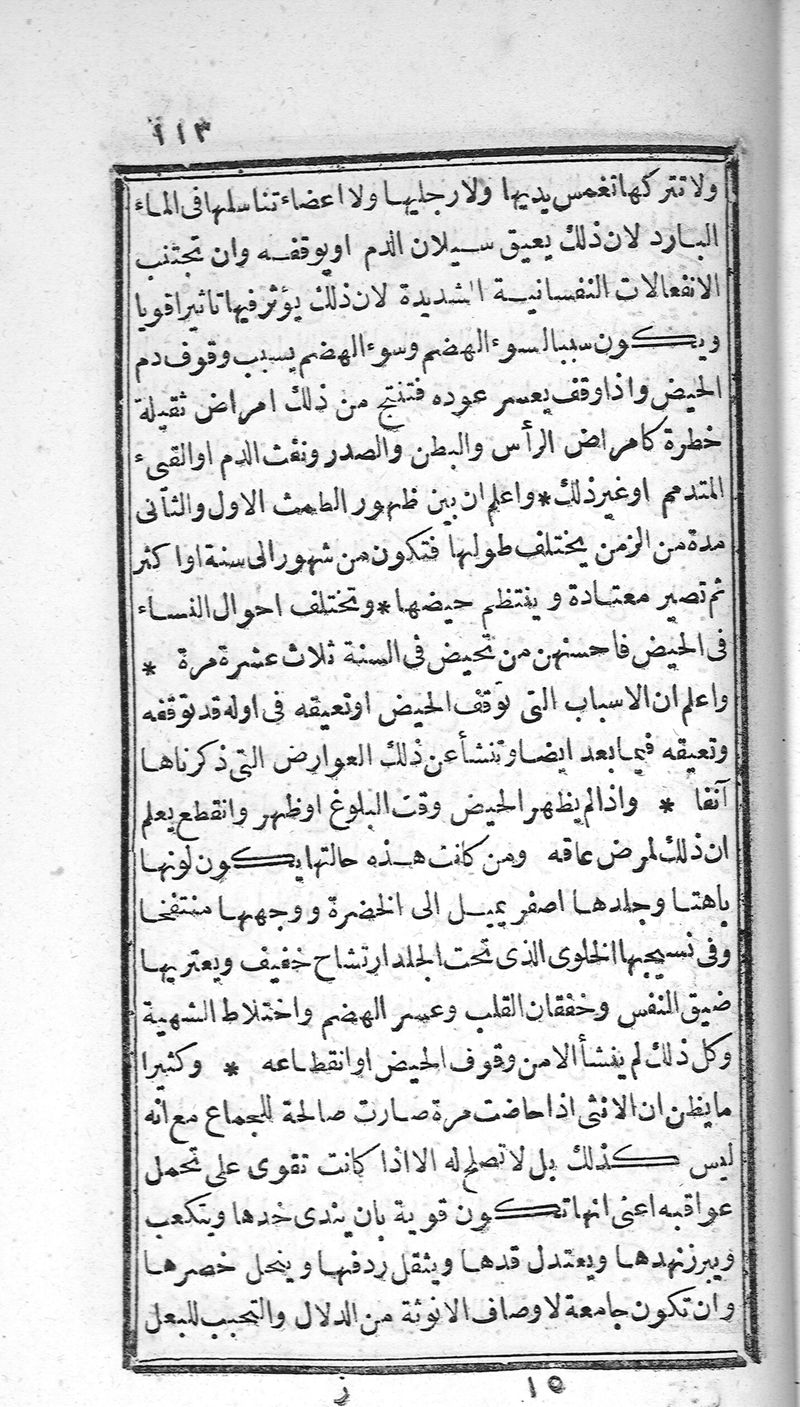 ١١٣
ولا تتركها تغمس يديها ولا رجليها ولا اعضاء تناسلها فى الماء
البارد لان ذلك يعيق سيلان الدم او يوقفه وان تجتنب
الانفعالات النفسانية الشديدة لان ذلك يؤثر فيها تاثيرا قويا
ويكون سببا لسوء الهضم وسوء الهضم يسبب وقوف دم
الحيض واذا وقف يعسر عوده فتنتج من ذلك امراض ثقيلة
خطرة كامراض الرأس والبطن والصدر ونفث الدم او القىء
المتدمم او غير ذلك * واعلم ان بين ظهور الطمث الاول والثانى
مدة من الزمن يختلف طولها فتكون من شهور الى سنة او اكثر
ثم تصير معتادة و ينتظم حيضها * وتختلف احوال النساء
فى الحيض فاحسنهن من تحيض فى السنة ثلاث عشرة مرة *
واعلم ان الاسباب التى توقف الحيض او تعيقه فى اوله قد توقفه
وتعيقه فيما بعد ايضا وتنشأ عن ذلك العوارض التى ذكرناها
آنفا * واذا لم يظهر الحيض وقت البلوغ او ظهر وانقطع يعلم
ان ذلك لمرض عاقه ومن كانت هذه حالتها يكون لونها
باهتا وجلدها اصفر يميل الى الخضرة ووجهها منتفخا
وفى نسيجها الخلوى الذى تحت الجلد ارتشاح خفيف ويعتريها
ضيق النفس وخفقان القلب وعسر الهضم واختلاط الشهية
وكل ذلك لم ينشأ الا من وقوف الحيض او انقطاعه * وكثيرا
ما يظن ان الانثى اذا حاضت مرة صارت صالحة للجماع مع انه
ليس كذلك بل لا تصلح له الا اذا كانت تقوى على تحمل
عواقبه اعنى انها تكون قوية بان يندى خدها ويتكعب
ويبرز نهدها ويعتدل قدها ويثقل ردفها وينحل خصرها
وان تكون جامعة لاوصاف الانوثة من الدلال والتحبب للبعل
١٥ ز